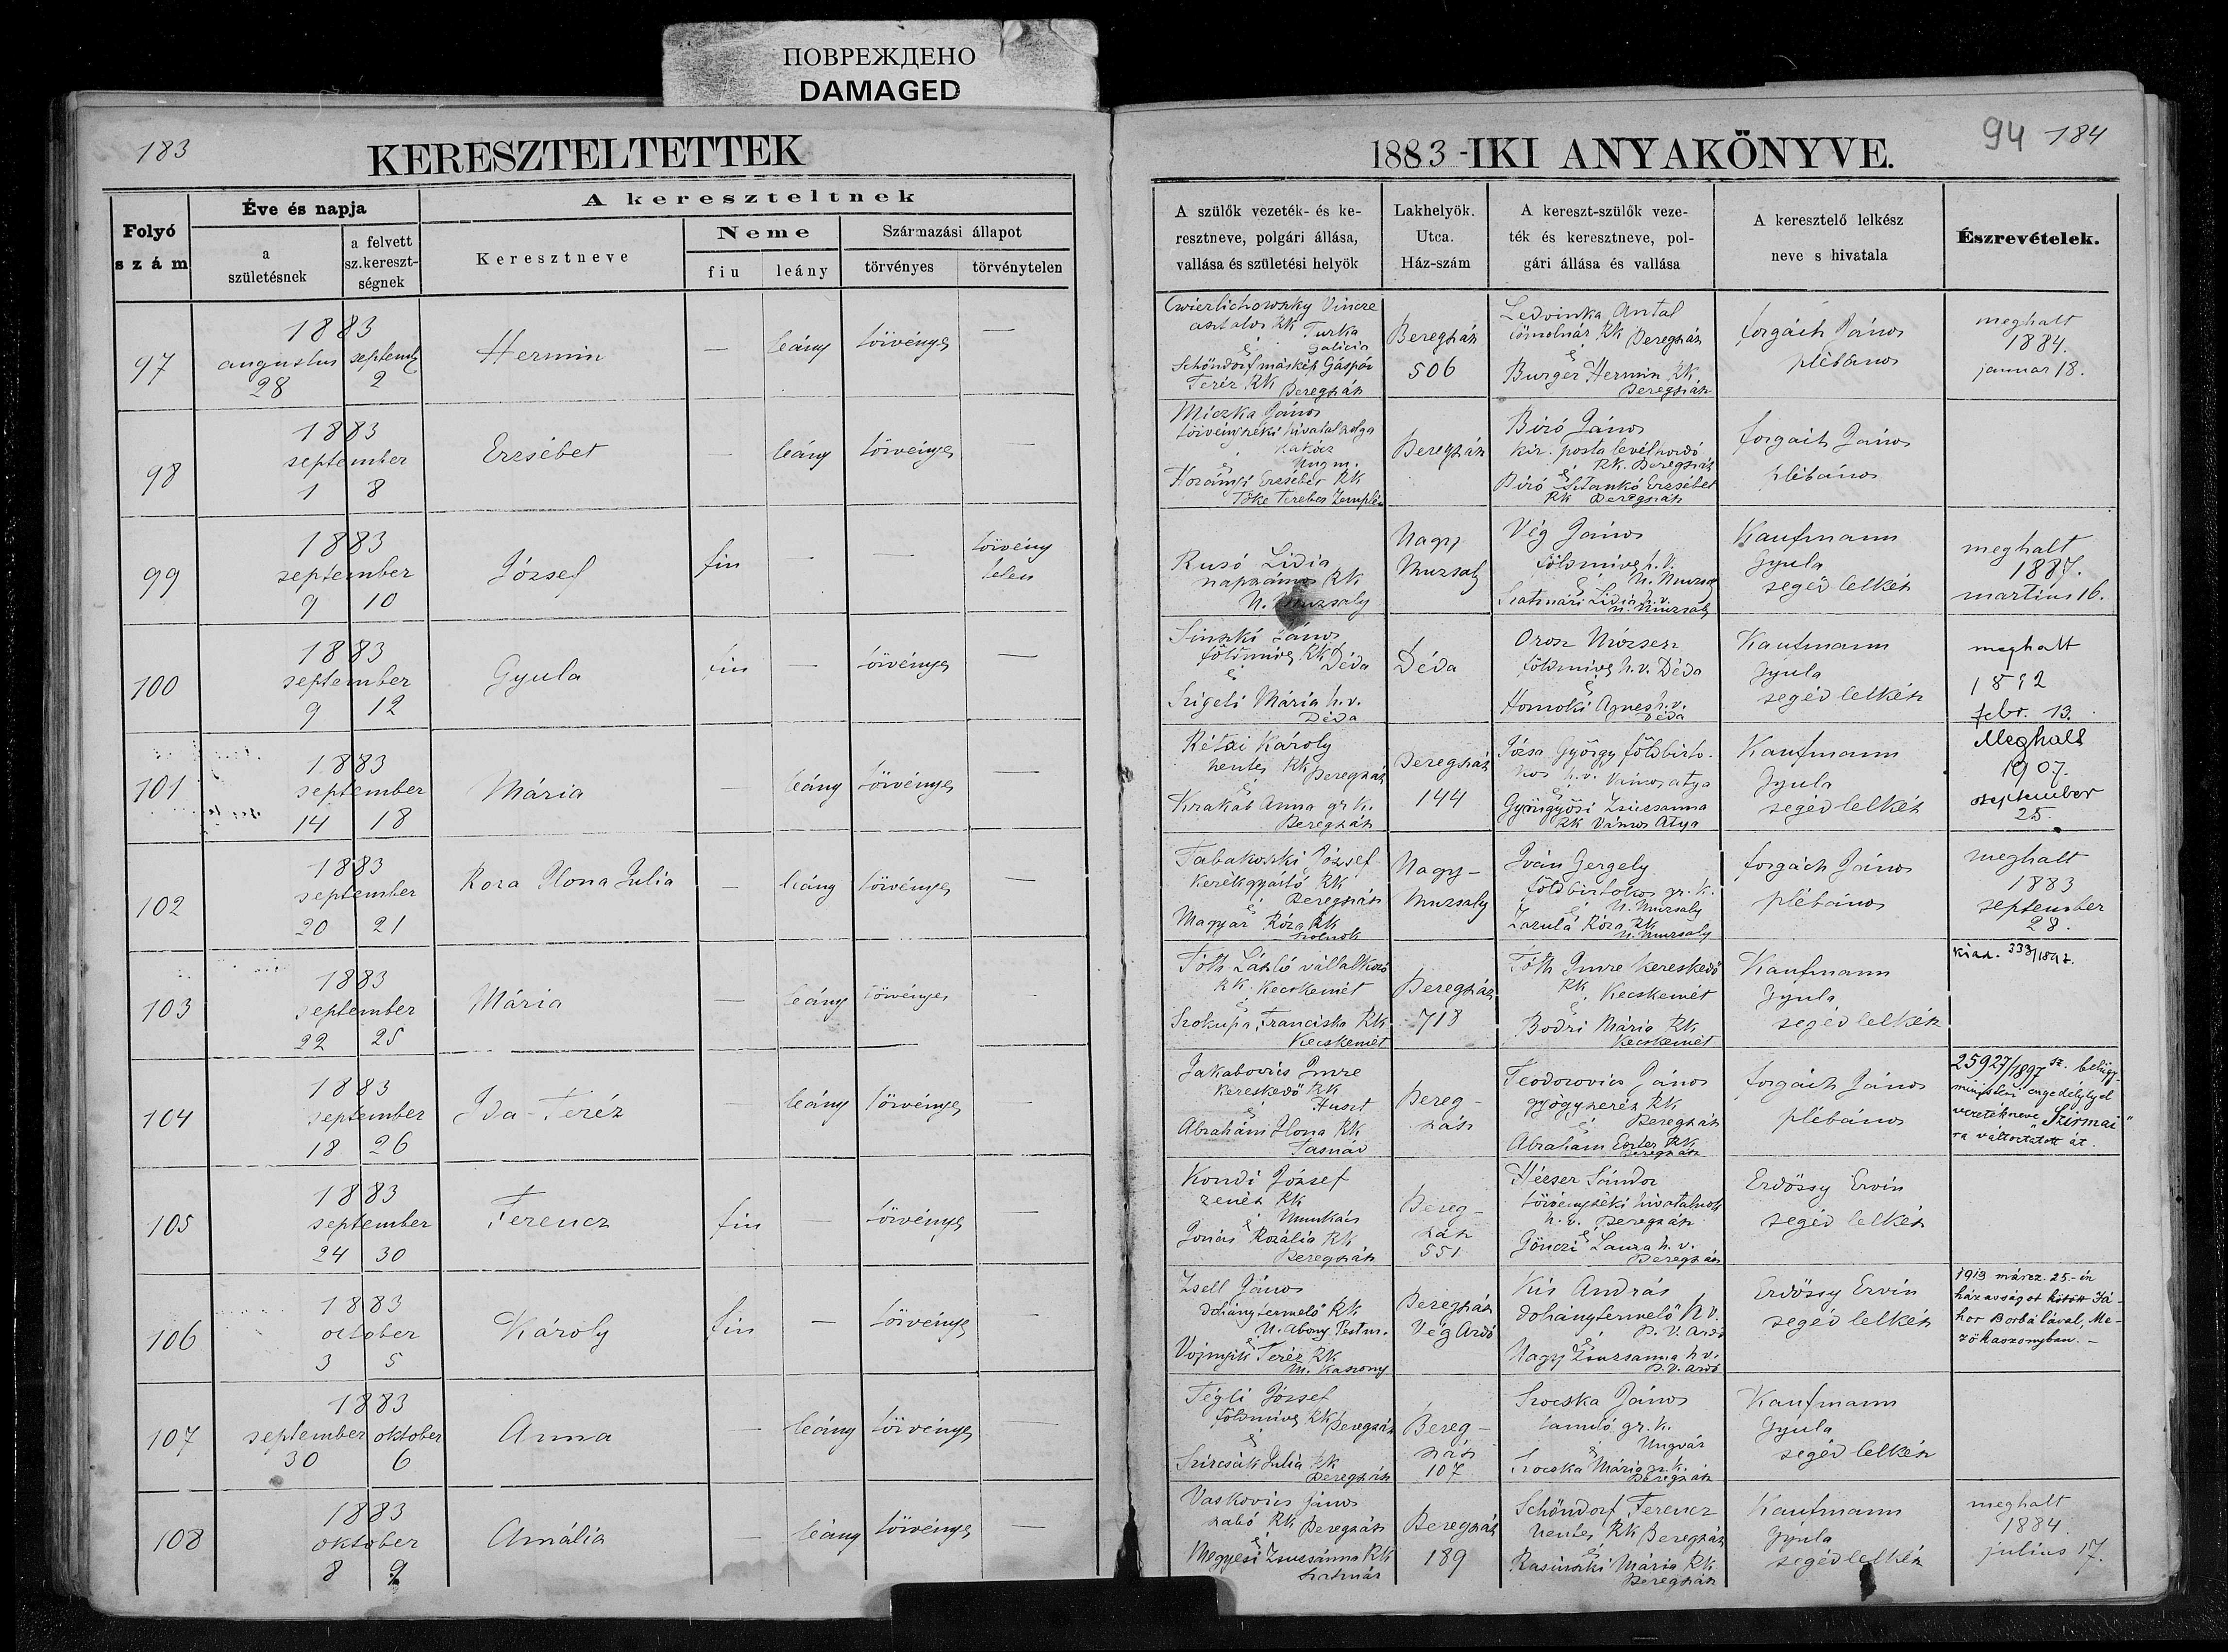 ПОВРЕЖДЕНО
DAMAGED
183
KERESZTELTETTEK
Folyó
szám
Éve és napja
a
születésnek
a felvett
sz. kereszt-
ségnek
A kereszteltnek
Keresztneve
Neme
fiu
leány
Származási állapot
törvényes
törvénytelen
94 184
1883-IKI ANYAKÖNYVE.
A szülők vezeték- és ke-
resztneve, polgári állása,
vallása és születési helyök
Lakhelyök.
Utca.
Ház-szám
A kereszt-szülők veze-
ték és keresztneve, pol-
gári állása és vallása
A keresztelő lelkész
neve s hivatala
Észrevételek.
97
1883
augustus septemb
28 2
Hermin
—
leány
törvényes
—
Cwierlichowsky Vincze
asztalos RK Turka
é Galicia
Schöndorf máskép Gáspár
Teréz RK
Beregszász
Beregszász
506
Ledvinka Antal
RK Beregszász
é
Burger Hermin RK
Beregszász
Forgách János
plébános
meghalt
1884.
januar 18.
98
1883
september
1 8
Erzsébet
—
leány
törvényes
—
Miczka János
törvényszéki hivatalszolga
Ung m.
é
Erzsébet RK
Tőke Terebes Zemplén
Beregszász
Biró János
kir. posta levélhordó
RK. Beregszász
é
Biró Sitankó Erzsébet
RK Beregszász
Forgách János
plébános
99
1883
september
9 10
József
fiu
—
—
törvény
telen
Rusó Lidia
napszámos RK
N. Muzsaly
Nagy
Muzsaly
Vég János
földmives h.v.
é N. Muzsaly
Szatmári Lidia h.v.
N. Muzsaly
Kaufmann
Gyula
segéd lelkész
meghalt
1887.
martius 16.
100
1883
september
9 12
Gyula
fiu
—
törvényes
—
Sinszki János
földmives RK
é Déda
Szigeti Mária h.v.
Déda
Déda
Orosz Mózses
földmives h.v. Déda
é
Homoki Agnes h.v.
Déda
Kaufmann
Gyula
segéd lelkész
meghalt
1892
febr. 13.
101
1883
september
14 18
Mária
—
leány
törvényes
—
Rétzi Károly
hentes RK Beregszász
é
Krakab Anna gr K.
Beregszász
Beregszász
144
Józsa György földbirto-
kos h.v. Vámos atya
é
Gyöngyösi Zsuzsanna
RK Vámos Atya
Kaufmann
Gyula
segéd lelkész
Meghalt
1907.
september
25.
102
1883
september
20 21
Roza Ilona Julia
—
leány
törvényes
—
Tabakoszki József
kerékgyártó RK
é Beregszász
Magyar Róza RK
Szolnok
Nagy-
Muzsaly
Iván Gergely
földbirtokos gr. k.
é N. Muzsaly
Zazulá Róza RK
N. Muzsaly
Forgách János
plébános
meghalt
1883
september
28.
103
1883
september
22 25
Mária
—
leány
törvényes
—
Tóth László vállalkozó
RK. Kecskemét
é
Szokupa Franciska RK
Kecskemét
Beregszász
718
Tóth Imre kereskedő
RK Kecskemét
é
Bodri Mária RK
Kecskemét
Kaufmann
Gyula
segéd lelkész
kiad. 333/1892.
104
1883
september
18 26
Ida-Teréz
—
leány
törvényes
—
Jakabovics Imre
kereskedő RK
é Huszt
Abrahám Ilona RK
Tasnád
Bereg-
szász
Teodorovics János
gyógyszerész RK
é Beregszász
Abraham Eszter RK
Beregszász
Forgách János
plébános
25927/1897 sz. belügy-
ministeri engedélylyel
vezetékneve „Szirmai"
ra változtatott át.
105
1883
september
24 30
Ferencz
fiu
—
törvényes
—
Kondi József
zenész RK
é Munkács
Jónás Rozália RK
Beregszász
Bereg-
szász
551
Sándor
törvényszéki hivatalnok
h.v. Beregszász
é
Gönczi Laura h.v.
Beregszász
Erdőssy Ervin
segéd lelkész
106
1883
october
3 5
Károly
fiu
—
törvényes
—
Zsell János
dohánytermelő RK
N. Abony Pest m.
é
Vojnyik Teréz RK
M. Kaszony
Beregszász
Vég Ardó
Kis András
dohánytermelő h.v.
B.V. Ardó
é
Nagy Zsuzsanna h.v.
B.V. Ardó
Erdőssy Ervin
segéd lelkész
1913 márcz. 25-én
házasságot kötött Já-
hor Borbálával, Me-
zőkaszonyban. —
107
1883
september oktober
30 6
Anna
—
leány
törvényes
—
Tégli József
földmives RK Beregszász
é
Szircsák Julia RK
Beregszász
Bereg-
szász
107
Szocska János
tanuló gr. k.
é Ungvár
Szocska Mária gr. k.
Beregszász
Kaufmann
Gyula
segéd lelkész
108
1883
oktober
8 9
Amália
—
leány
törvényes
—
Vaskovics János
szabó RK Beregszász
é
Megyesi Zsuzsánna RK
Szatmár
Beregszász
189
Schöndorf Ferencz
hentes RK Beregszász
é
Rasinszki Mária RK
Beregszász
Kaufmann
Gyula
segéd lelkész
meghalt
1884.
julius 17.